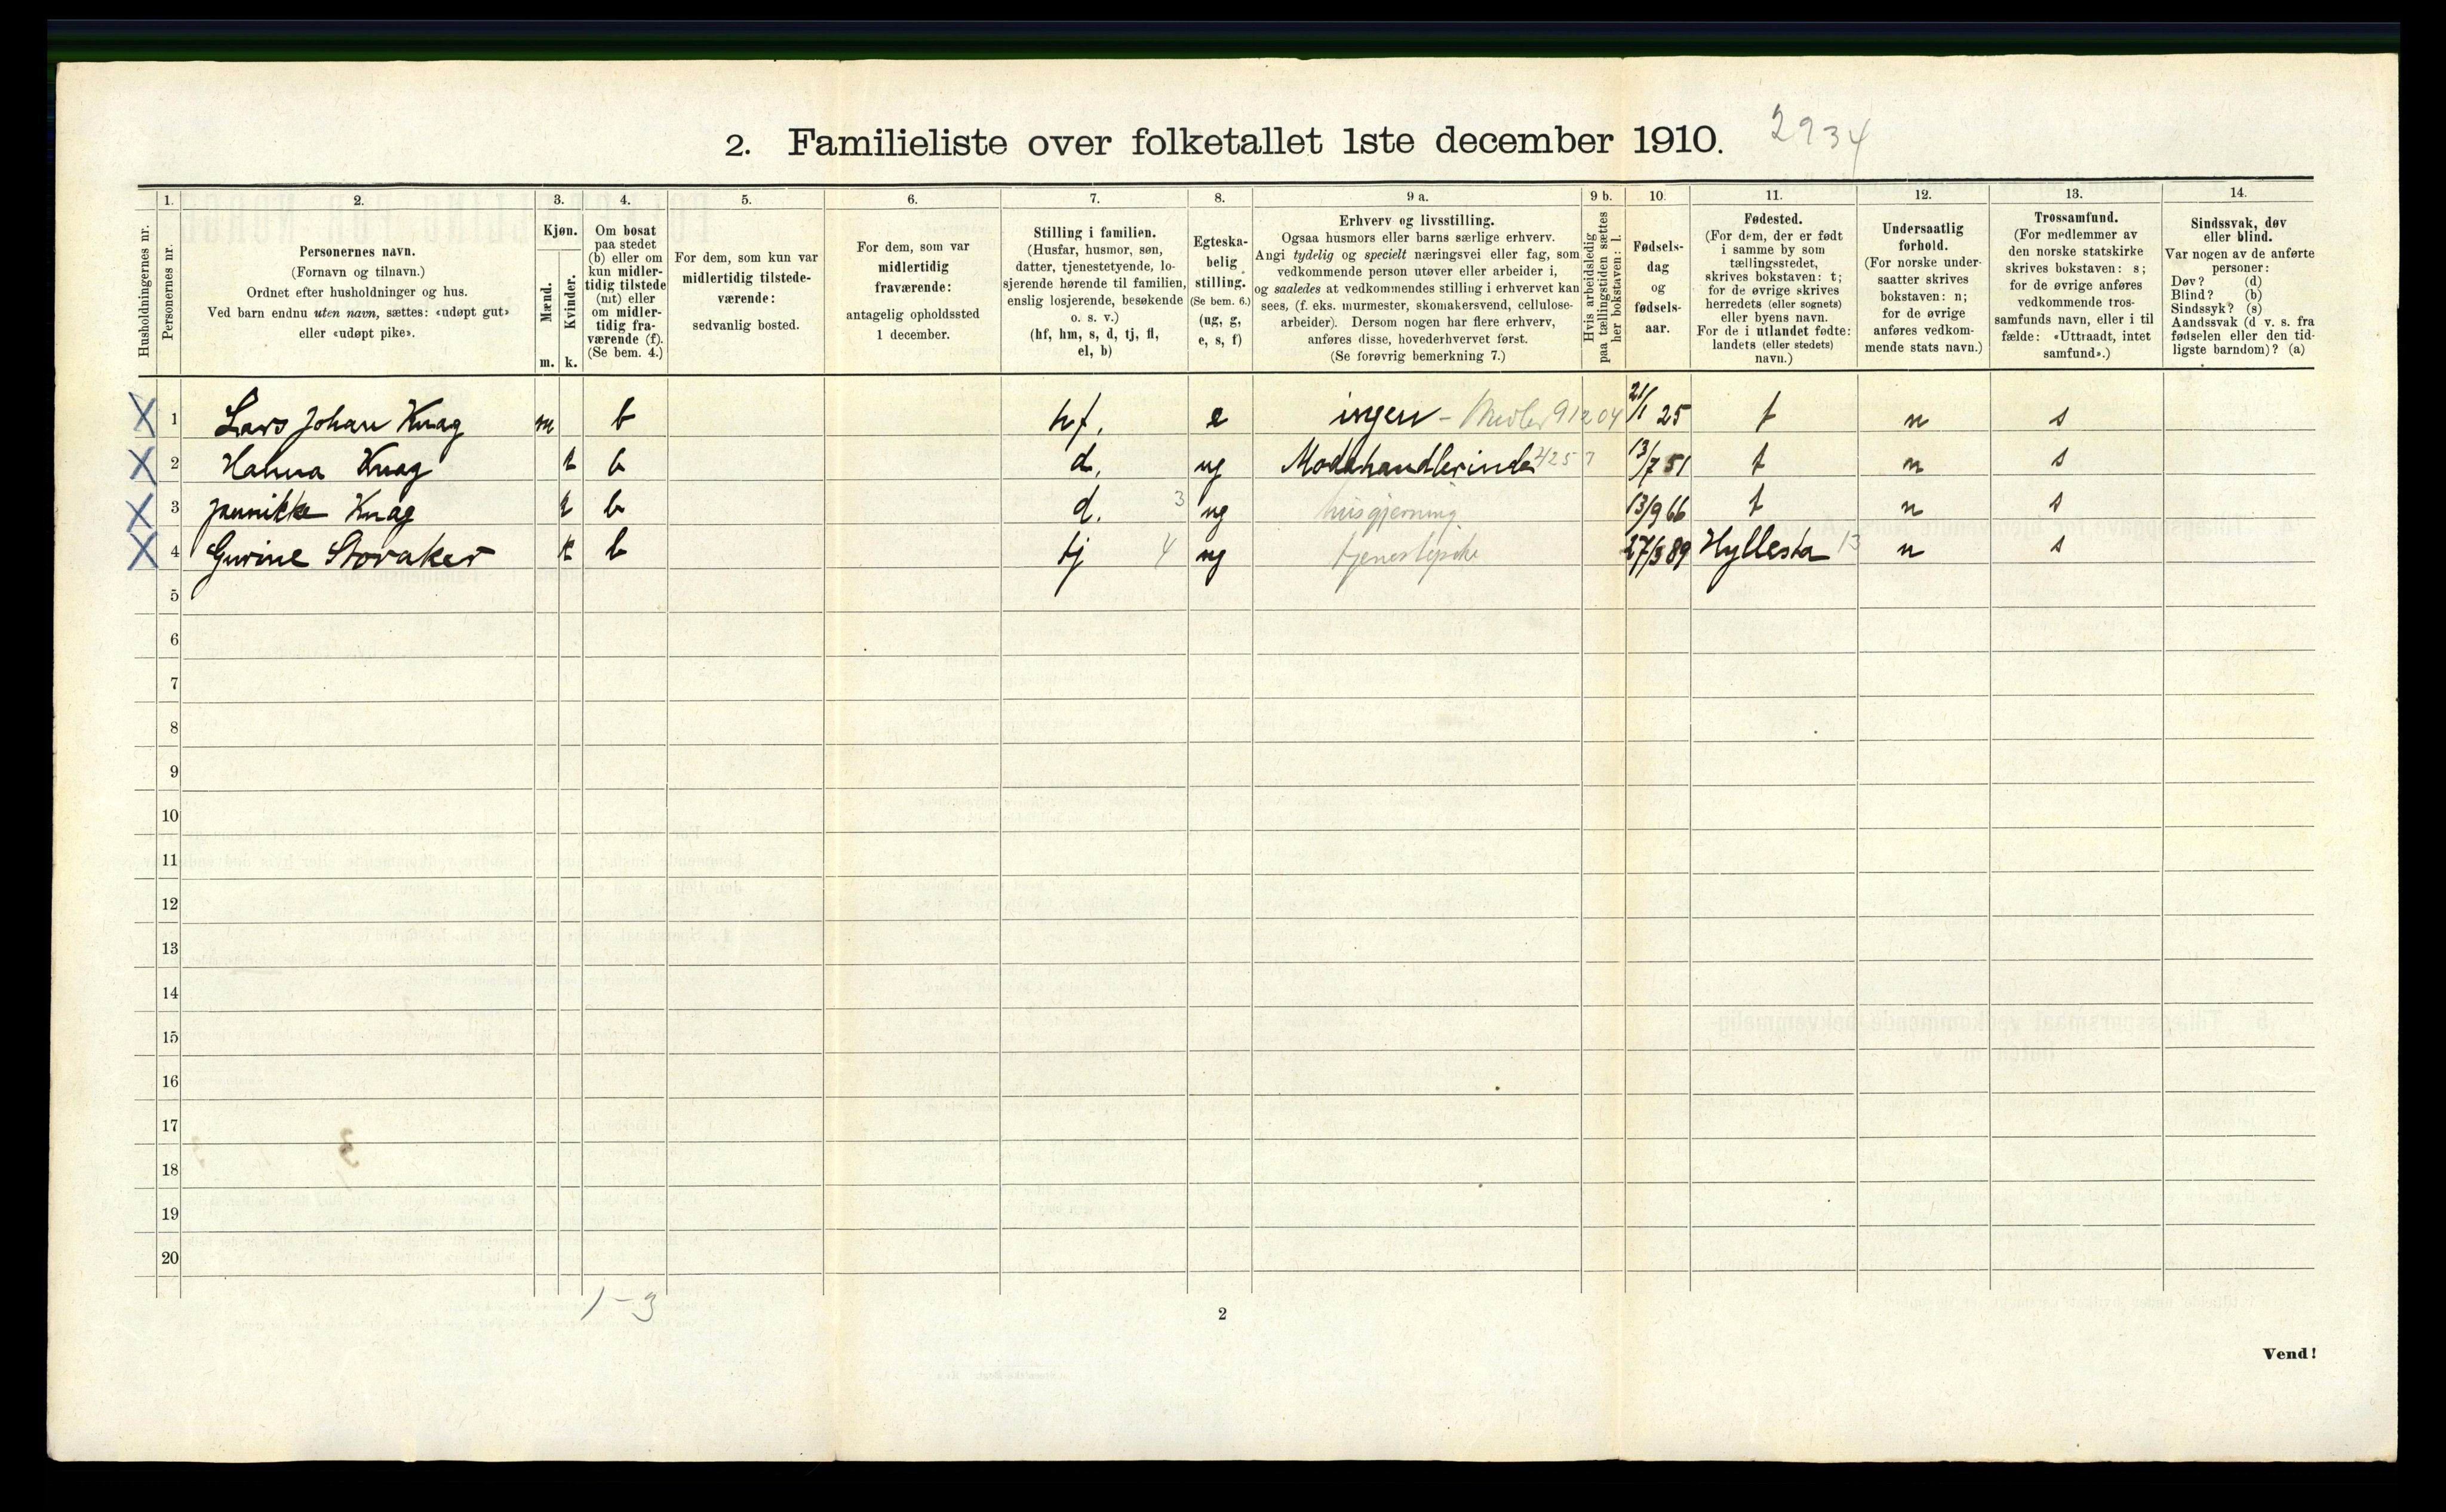 2. Familieliste over folketallet 1ste december 1910. 2934
Husholdningernes nr.
1. Personernes nr.
2. Personernes navn. (Fornavn og tilnavn.) Ordnet efter husholdninger og hus. Ved barn endnu uten navn, sættes: «udøpt gut» eller «udøpt pike».
3. Kjøn. Mænd. m. Kvinder. k.
4. Om bosat paa stedet (b) eller om kun midlertidig tilstede (mt) eller om midlertidig fraværende (f). (Se bem. 4.)
5. For dem, som kun var midlertidig tilstedeværende: sedvanlig bosted.
6. For dem, som var midlertidig fraværende: antagelig opholdssted 1 december.
7. Stilling i familien. (Husfar, husmor, søn, datter, tjenestetyende, losjerende hørende til familien, enslig losjerende, besøkende o. s. v.) (hf, hm, s, d, tj, fl, el, b)
8. Egteskabelig stilling. (Se bem. 6.) (ug, g, e, s, f)
9 a. Erhverv og livsstilling. Ogsaa husmors eller barns særlige erhverv. Angi tydelig og specielt næringsvei eller fag, som vedkommende person utøver eller arbeider i, og saaledes at vedkommendes stilling i erhvervet kan sees, (f. eks. murmester, skomakersvend, cellulosearbeider). Dersom nogen har flere erhverv, anføres disse, hovederhvervet først. (Se forøvrig bemerkning 7.)
9 b. Hvis arbeidsledig paa tællingstiden sættes her bokstaven: l.
10. Fødselsdag og fødselsaar.
11. Fødested. (For dem, der er født i samme by som tællingsstedet, skrives bokstaven: t; for de øvrige skrives herredets (eller sognets) eller byens navn. For de i utlandet fødte: landets (eller stedets) navn.)
12. Undersaatlig forhold. (For norske undersaatter skrives bokstaven: n; for de øvrige anføres vedkommende stats navn.)
13. Trossamfund. (For medlemmer av den norske statskirke skrives bokstaven: s; for de øvrige anføres vedkommende trossamfunds navn, eller i tilfælde: «Uttraadt, intet samfund».)
14. Sindssvak, døv eller blind. Var nogen av de anførte personer: Døv? (d) Blind? (b) Sindssyk? (s) Aandssvak (d v. s. fra fødselen eller den tidligste barndom)? (a)
X 1 Lars Johan Knag m b hf. e ingen - 91204 21/1 25 t n s
X 2 Hanna Knag k b d. ug Modehandlerinde 4257 13/7 51 t n s
X 3 Jannikke Knag k b d. 3 ug husgjerning 13/9 66 t n s
X 4 Gurine Storaker k b tj 4 ug tjenestepike 27/3 89 Hyllesta 13 n s
5
6
7
8
9
10
11
12
13
14
15
16
17
18
19
20
1-3
2
Vend!